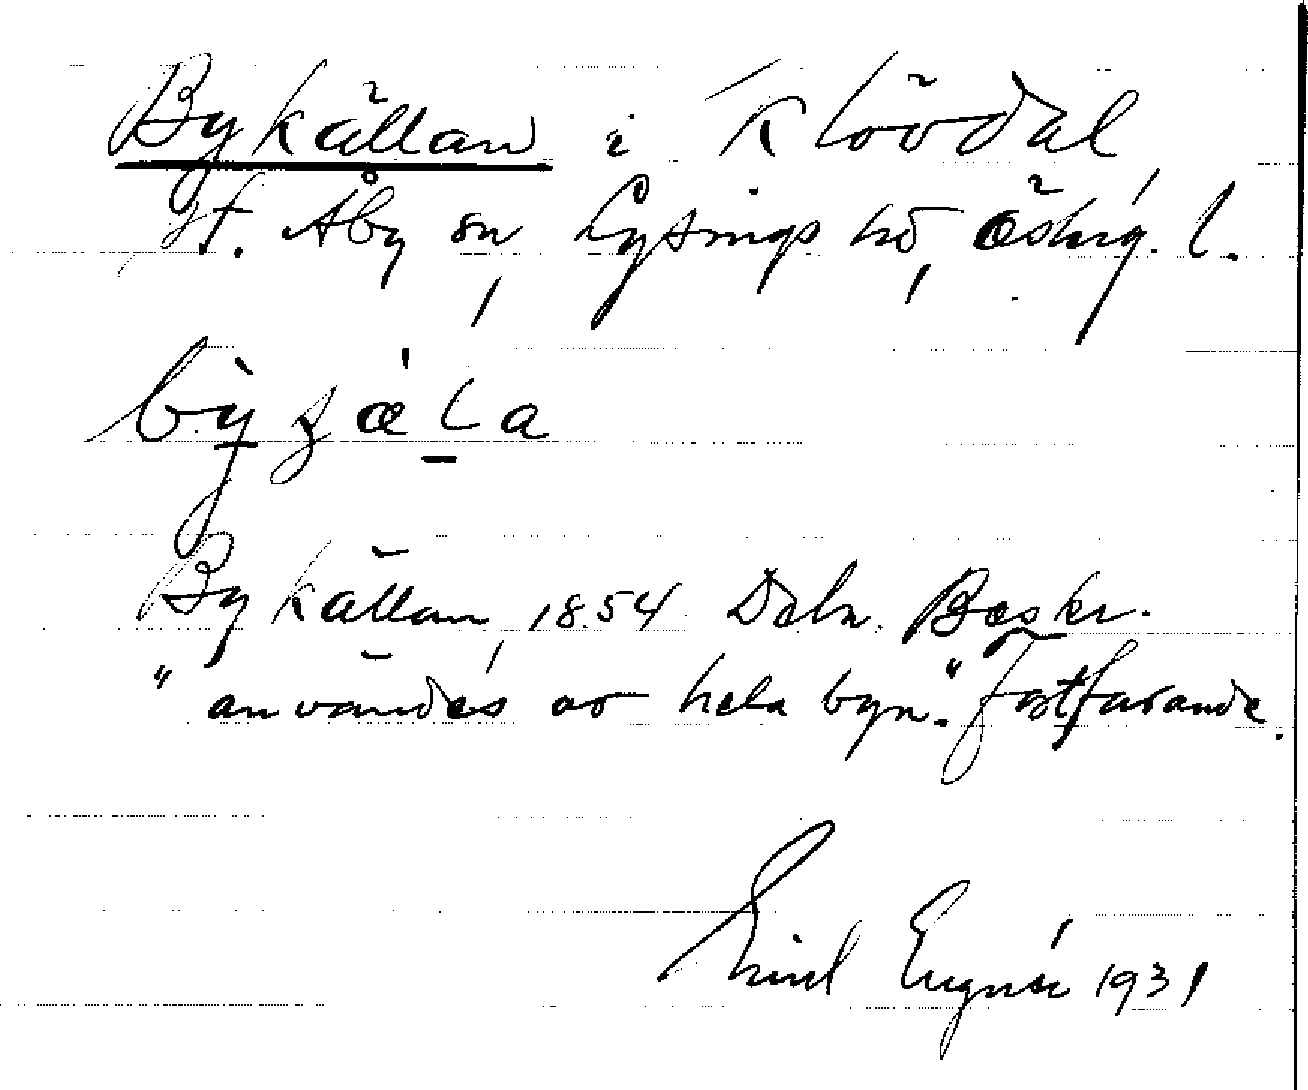 Bykällan i Klövdal
St. Åby sn, Lysings hd, Österg. l.
Bykällan, 1854 Deln. Beskr.
"användes av hela byn." Fortfarande.
Emil Engnér 1931